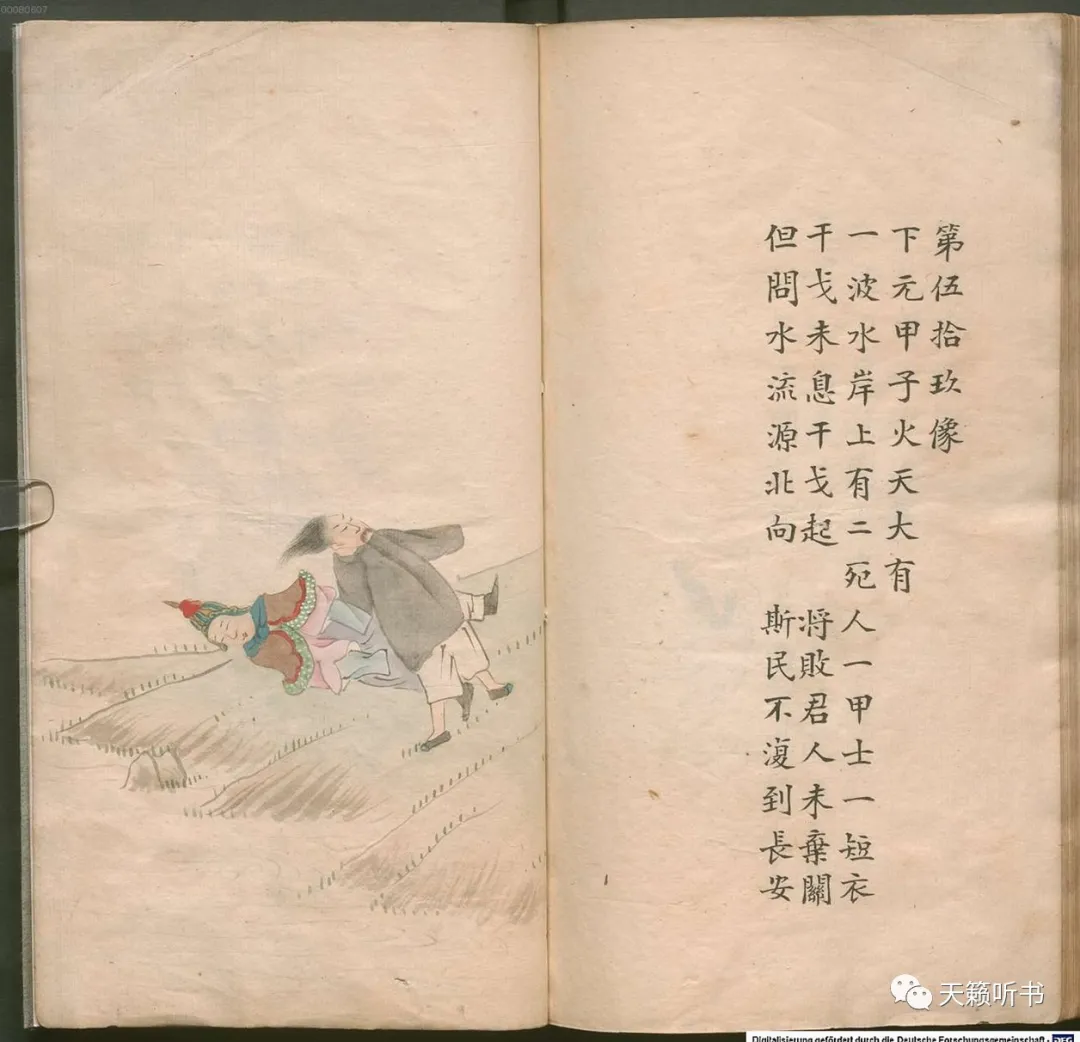 00080607
第伍拾玖像
下元甲子火天大有
一波水岸上有二死人一甲士一短衣
干戈未息干戈起 将敗君人未棄關
但問水流源北向 斯民不復到長安
天籁听书
Digitalisierung gefördert durch die Deutsche Forschungsgemeinschaft - DFG